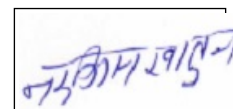 नरकिमा खातुन